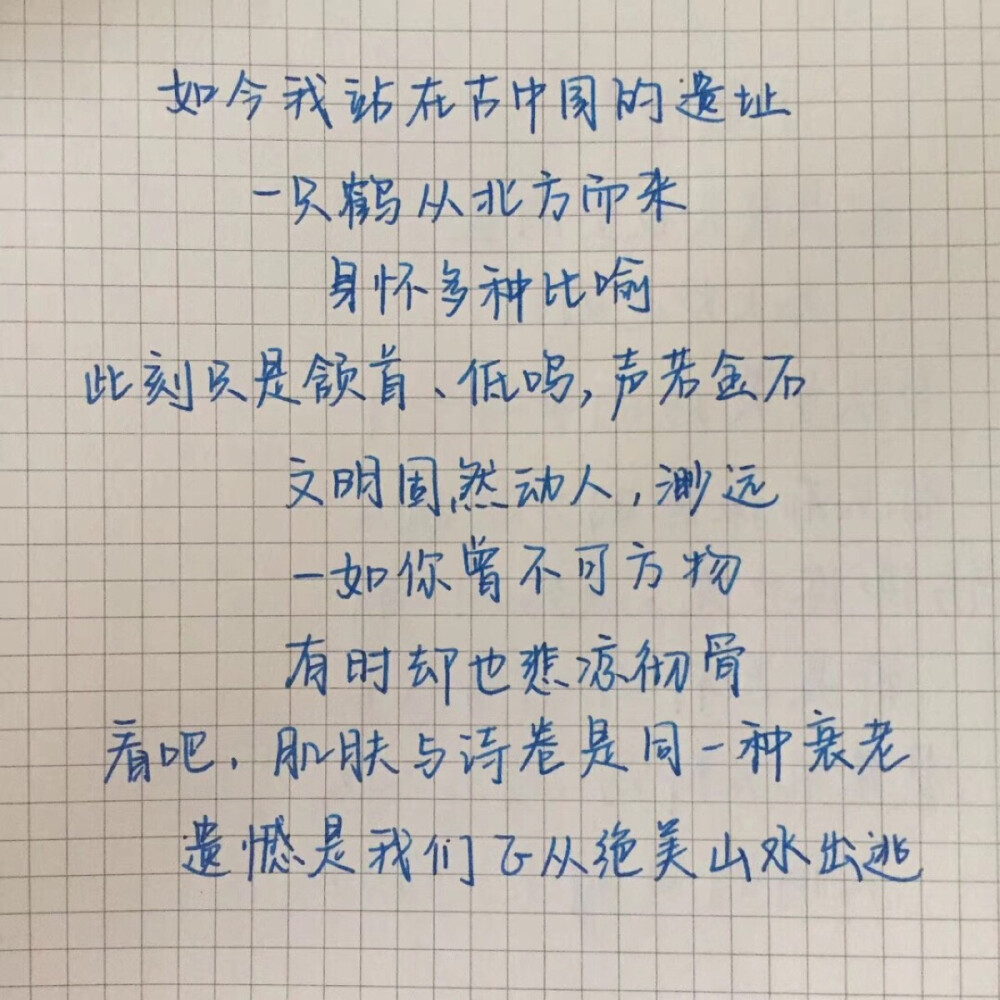 如今我站在古中国的遗址
一只鹤从北方而来
身怀多种比喻
此刻只是颔首、低鸣,声若金石
文明固然动人,渺远
一如你曾不可方物
有时却也悲凉彻骨
看吧,肌肤与诗卷是同一种衰老
遗憾是我们已从绝美山水出逃